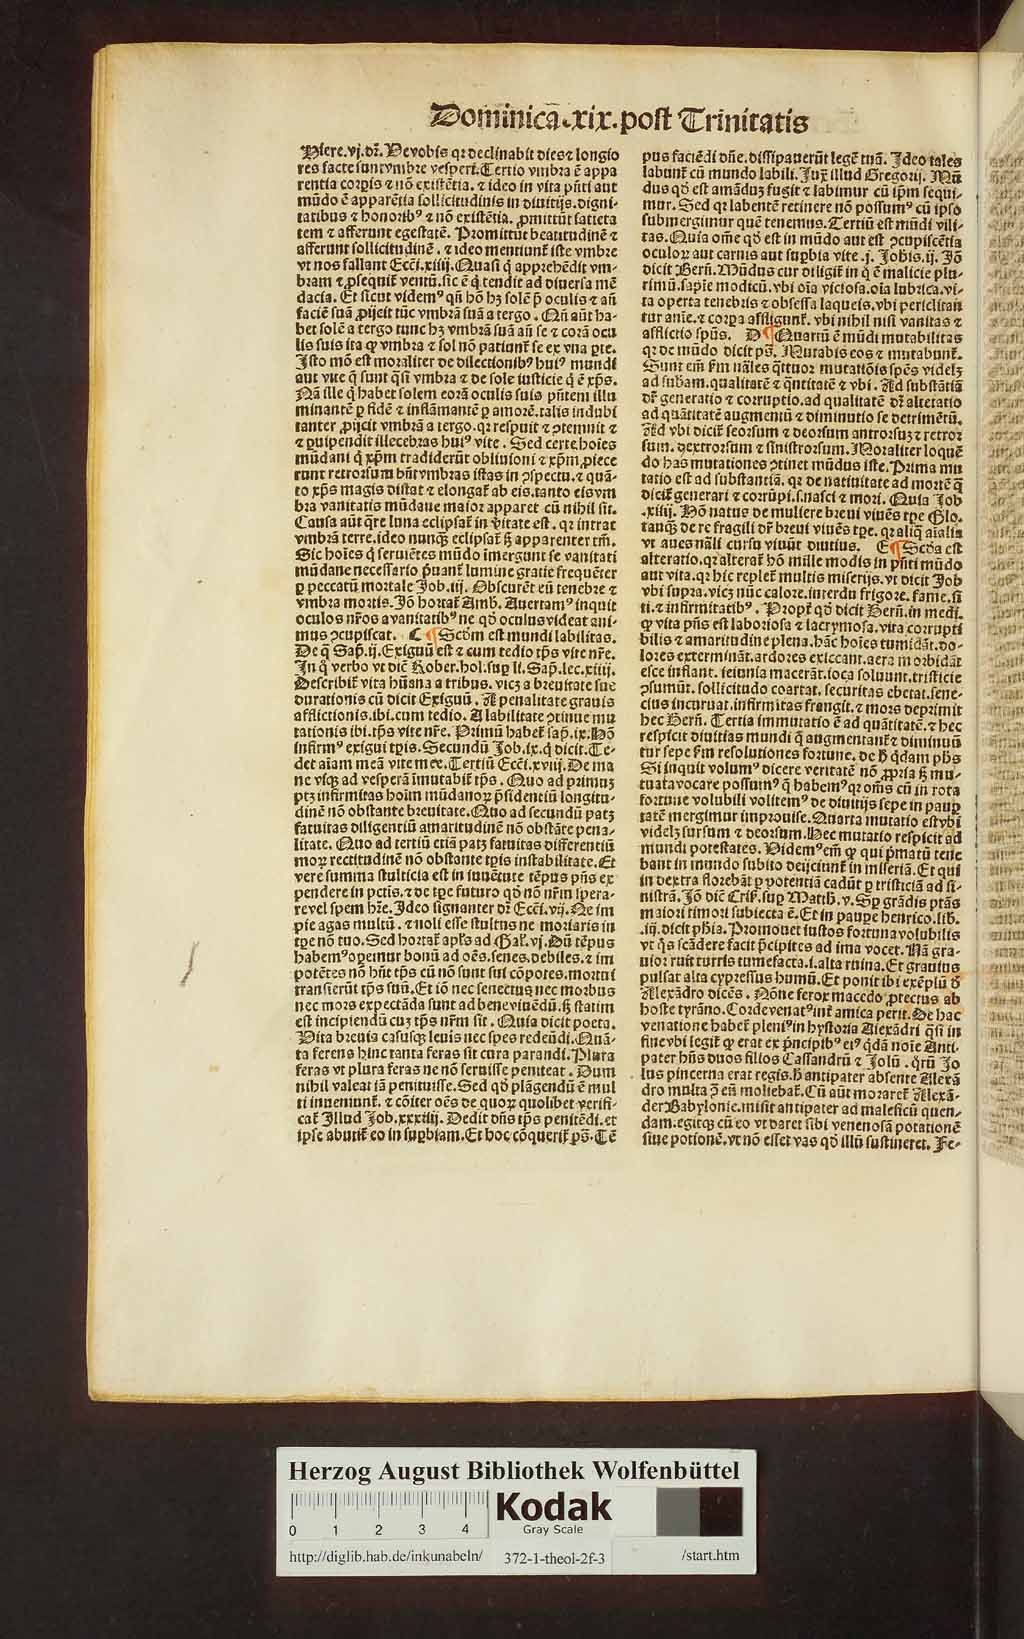 Dominica̅.xix.post Trinitatis
Hiere.vj.dr̅. Ve vobis qr declinabit dies ⁊ longio
res facte sunt vmbre vesperi. Tertio vmbra ē appa
rentia corpis ⁊ nō existētia. ⁊ ideo in vita pn̄ti aut
mūdo ē apparētia sollicitudinis in diuitijs. digni-
tatibus ⁊ honoribꝰ ⁊ nō existētia. ꝓmittūt satieta
tem ⁊ afferunt egestatē. Promittūt beatitudinē ⁊
afferunt sollicitudinē. ⁊ ideo mentiunt̄ iste vmbre
vt nos fallant Ecci̅.xiiij. Quasi q̄ apprehēdit vm-
bram ⁊ ꝓsequit̄ ventū. sic ē q̄ tendit ad diuersa mē
dacia. Et sicut videmꝰ qn̄ hō hꝫ solē p̄ oculis ⁊ an̄
faciē suā ꝓijcit tūc vmbrā suā a tergo. Qn̄ aūt ha-
bet solē a tergo tunc hꝫ vmbrā suā an̄ se ⁊ corā ocu
lis suis ita ꝙ vmbra ⁊ sol nō patiunt̄ se ex vna ꝑte.
Isto mō est moraliter de dilectionibꝰ huiꝰ mundi
aut vite q̄ sunt q̄si vmbra ⁊ de sole iusticie q̄ ē xp̄s.
Nā ille q̄ habet solem corā oculis suis pn̄tem illu
minantē ꝑ fidē ⁊ inflāmantē ꝑ amorē. talis indubi
tanter ꝓijcit vmbrā a tergo. qr respuit ⁊ ꝯtemnit ⁊
⁊ vilipendit illecebras huiꝰ vite. Sed certe hoīes
mūdani q̄ xp̄m tradiderūt obliuioni ⁊ xp̄m ꝓiece
runt retrorsum hn̄t vmbras istas in ꝯspectu. ⁊ quā-
to xp̄s magis distat ⁊ elongat̄ ab eis. tanto eis vm
bra vanitatis mūdane maior apparet cū nihil sit.
Causa aūt q̄re luna eclipsat̄ in ṽitate est. qr intrat
vmbrā terre. ideo nunq̄ꝫ eclipsat̄ ꝗꝫ apparenter tm̄.
Sic hoīes q̄ seruiētes mūdo īmergunt se vanitati
mūdane necessario p̄uant̄ lumine gratie frequēter
ꝑ peccatū mortale Job.iij. Obscurēt eū tenebre ⁊
vmbra mortis. Jō hortat̄ Amb̄. Auertamꝰ inquit
oculos nr̄os a vanitatibꝰ ne qd̄ oculus videat ani-
mus ꝯcupiscat. C ¶ Scd̄m est mundi labilitas.
De q̄ Sap̄.ij. Exiguū est ⁊ cum tedio tp̄s vite nr̄e.
In q̄ verbo vt dic̄ Rober. hol. suꝑ li. Sap̄. lec. xiiij.
Describit̄ vita hūana a tribus. vicꝫ a breuitate sue
durationis cū dicit Exiguū. A penalitate grauis
afflictionis. ibi. cum tedio. A labilitate ꝯtinue mu
tationis ibi. tp̄s vite nr̄e. Primū habet̄ sap̄.ix. Hō
infirmꝰ exigui tp̄is. Secundū Job.ix. q̄ dicit. Te-
det aīam meā vite mee. Tertiū Ecci̅.xviij. De ma
ne vsqꝫ ad vesperā īmutabit̄ tp̄s. Quo ad primuꝫ
ptꝫ infirmitas hoīm mūdanoꝝ p̄sidentiū longitu-
dinē nō obstante breuitate. Quo ad secundū patꝫ
fatuitas diligentiū amaritudinē nō obstāte pena-
litate. Quo ad tertiū etiā patꝫ fatuitas differentiū
moꝝ rectitudinē nō obstante tp̄is instabilitate. Et
vere summa stulticia est in iuuētute tēpus pn̄s ex
pendere in pctīs. ⁊ de tp̄e futuro qd̄ nō nr̄m spera-
re vel spem hr̄e. Ideo signanter dr̄ Ecci̅.vij. Ne im
pie agas multū. ⁊ noli esse stultus ne moriaris in
tp̄e nō tuo. Sed hortat̄ apl̄s ad Gal̄.vj. Dū tēpus
habemꝰ oꝑemur bonū ad oēs. senes. debiles. ⁊ im
potētes nō hn̄t tp̄s cū nō sunt sui cōpotes. mortui
transierūt tp̄s suū. Et iō nec senectus nec morbus
nec mors expectāda sunt ad bene viuēdū. ꝗꝫ statim
est incipiendū cuꝫ tp̄s nr̄m sit. Quia dicit poeta.
Vita breuis casusqꝫ leuis nec spes redeūdi. Quā-
ta ferens hinc tanta feras sit cura parandi. Plura
feras vt plura feras ne nō seruisse peniteat. Dum
nihil valeat iā penituisse. Sed qd̄ plāgendū ē mul
ti inueniunt̄. ⁊ cōiter oēs de quoꝝ quolibet verifi-
cat̄ Illud Job.xxxiiij. Dedit dn̄s tp̄s penitēdi. et
ipse abutit̄ eo in suꝑbiam. Et hoc cōquerit̄ ps̄. Tē
pus faciēdi dn̄e. dissipauerūt legē tuā. Ideo tales
labunt̄ cū mundo labili. Jux̄ illud Gregorij. Mū
dus qd̄ est amādus fugit ⁊ labimur cū ip̄m sequi-
mur. Sed qr labentē retinere nō possumꝰ cū ipso
submergimur quē tenemus. Tertiū est mūdi vili-
tas. Quia om̄e qd̄ est in mūdo aut est ꝯcupiscētia
oculoꝝ aut carnis aut suꝑbia vite .j. Johis.ij. Jō
dicit Bern̄. Mūdus cur diligit̄ in q̄ ē malicie plu-
rimū. sapīe modicū. vbi oīa viciosa. oīa lubrica. vi-
ta operta tenebris ⁊ obsessa laqueis. vbi periclitan
tur anīe. ⁊ corpa affligunt̄. vbi nihil nisi vanitas ⁊
afflictio spūs. D ¶ Quartū ē mūdi mutabilitas
qr de mūdo dicit ps̄. Mutabis eos ⁊ mutabunt̄.
Sunt em̄ ẜm nāles q̄ttuor mutatiōis spēs videlꝫ
ad subam̄. qualitatē ⁊ q̄ntitatē ⁊ vbi. Ad substātiā
dr̄ generatio ⁊ corruptio. ad qualitatē dr̄ alteratio
ad quātitatē augmentū ⁊ diminutio se detrimētū.
Ad vbi dicit̄ seorsum ⁊ deorsum antrorsuꝫ ⁊ retror
sum. dextrorsum ⁊ sinistrorsum. Moraliter loquē
do has mutationes ꝯtinet mūdus iste. Prima mu
tatio est ad substantiā. qr de natiuitate ad mortē q̄
dicit̄ generari ⁊ corrūpi. s. nasci ⁊ mori. Quia Job
.xiiij. Hō natus de muliere breui viuēs tp̄e Glo.
tanq̄ꝫ de re fragili dr̄ breui viuēs tp̄e. qr aliq̄ aīalia
vt aues nāli cursu viuūt diutius. E ¶ Scd̄a est
alteratio. qr alterat̄ hō mille modis in pn̄ti mūdo
aut vita. qr hic replet̄ multis miserijs. vt dicit Job
vbi supra. vicꝫ nūc calore. interdu frigore. fame. si
ti. ⁊ infirmitatibꝰ. Propt̄ qd̄ dicit Bern̄. in medi.
ꝙ vita pn̄s est laboriosa ⁊ lacrymosa. vita corrupti
bilis ⁊ amaritudine plena. hāc hoīes tumidāt. do-
lores extermināt. ardores exiccant. aera morbidāt
esce inflant. ieiunia macerāt. ioca soluunt. tristicie
ꝯsumūt. sollicitudo coartat. securitas ebetat. sene-
ctus incuruat. infirmitas frangit. ⁊ mors deprimit
hec Bern̄. Tertia immutatio ē ad quātitatē. ⁊ hec
respicit diuitias mundi q̄ augmentant̄ ⁊ diminuū
tur sepe ẜm resolutiones fortune. de h̄ q̄dam phs̄
Si inquit volumꝰ dicere veritatē nō ꝓpria ꝗꝫ mu-
tuata vocare possumꝰ q̄ habemꝰ qr om̄s cū in rota
fortune volubili volitemꝰ de diuitijs sepe in pauꝑ
tatē mergimur improuise. Quarta mutatio est vbi
videlꝫ sursum ⁊ deorsum. Hec mutatio respicit ad
mundi potestates. Videmꝰ em̄ ꝙ qui p̄matū tene
bant in mundo subito deijciunt̄ in miseriā. Et qui
in dextra florebāt ꝑ potentiā cadūt ꝑ tristiciā ad si-
nistrā. Jō dic̄ Cris̄. suꝑ Matth̄.v. Sp̄ grādis ptās
maiori timori subiecta ē. Et in pauꝑe henrico. lib̄.
.iij. dicit phīa. Promouet iustos fortuna volubilis
vt q̄s scādere facit p̄cipites ad ima vocet. Nā gra-
uior ruit turris tumefacta. i. alta ruina. Et grauius
pulsat alta cypressus humū. Et ponit ibi exēplū d̄
Alexādro dicēs. Nōne ferox macedo ꝓtectus ab
hoste tyrāno. Corde venatꝰ int̄ amica perit. De hac
venatione habet̄ pleniꝰ in hystoria Alexādri q̄si in
fine vbi legit̄ ꝙ erat ex p̄ncipibꝰ eiꝰ q̄dā noīe Anti-
pater hn̄s duos filios Cassandrū ⁊ Jolū. q̄rū Jo
lus pincerna erat regis. h̄ antipater absente Alexā
dro multa ꝯ eū moliebat̄. Cū aūt moraret̄ Alexā-
der Babylonie. misit antipater ad maleficū quen-
dam. egitqꝫ cū eo vt daret sibi venenosā potationē
siue potionē. vt nō esset vas qd̄ illū sustineret. Fe-
Herzog August Bibliothek Wolfenbüttel
0 1 2 3 4
Kodak
Gray Scale
http://diglib.hab.de/inkunabeln/ 372-1-theol-2f-3 /start.htm